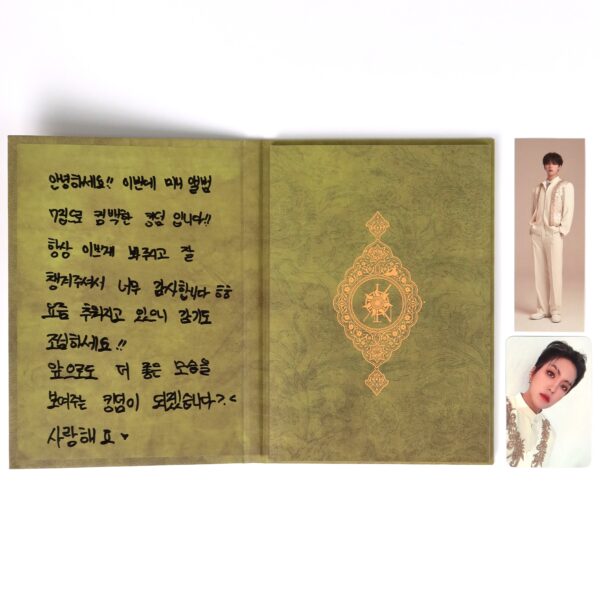 안녕하세요!! 이번에 미니 앨범
7집으로 컴백한 킹덤 입니다!!
항상 이쁘게 봐주시고 잘
챙겨주셔서 너무 감사합니다 ㅎㅎ
요즘 추워지고 있으니 감기도
조심하세요!!
앞으로도 더 좋은 모습을
보여주는 킹덤이 되겠습니다>.<
사랑해요 ♥